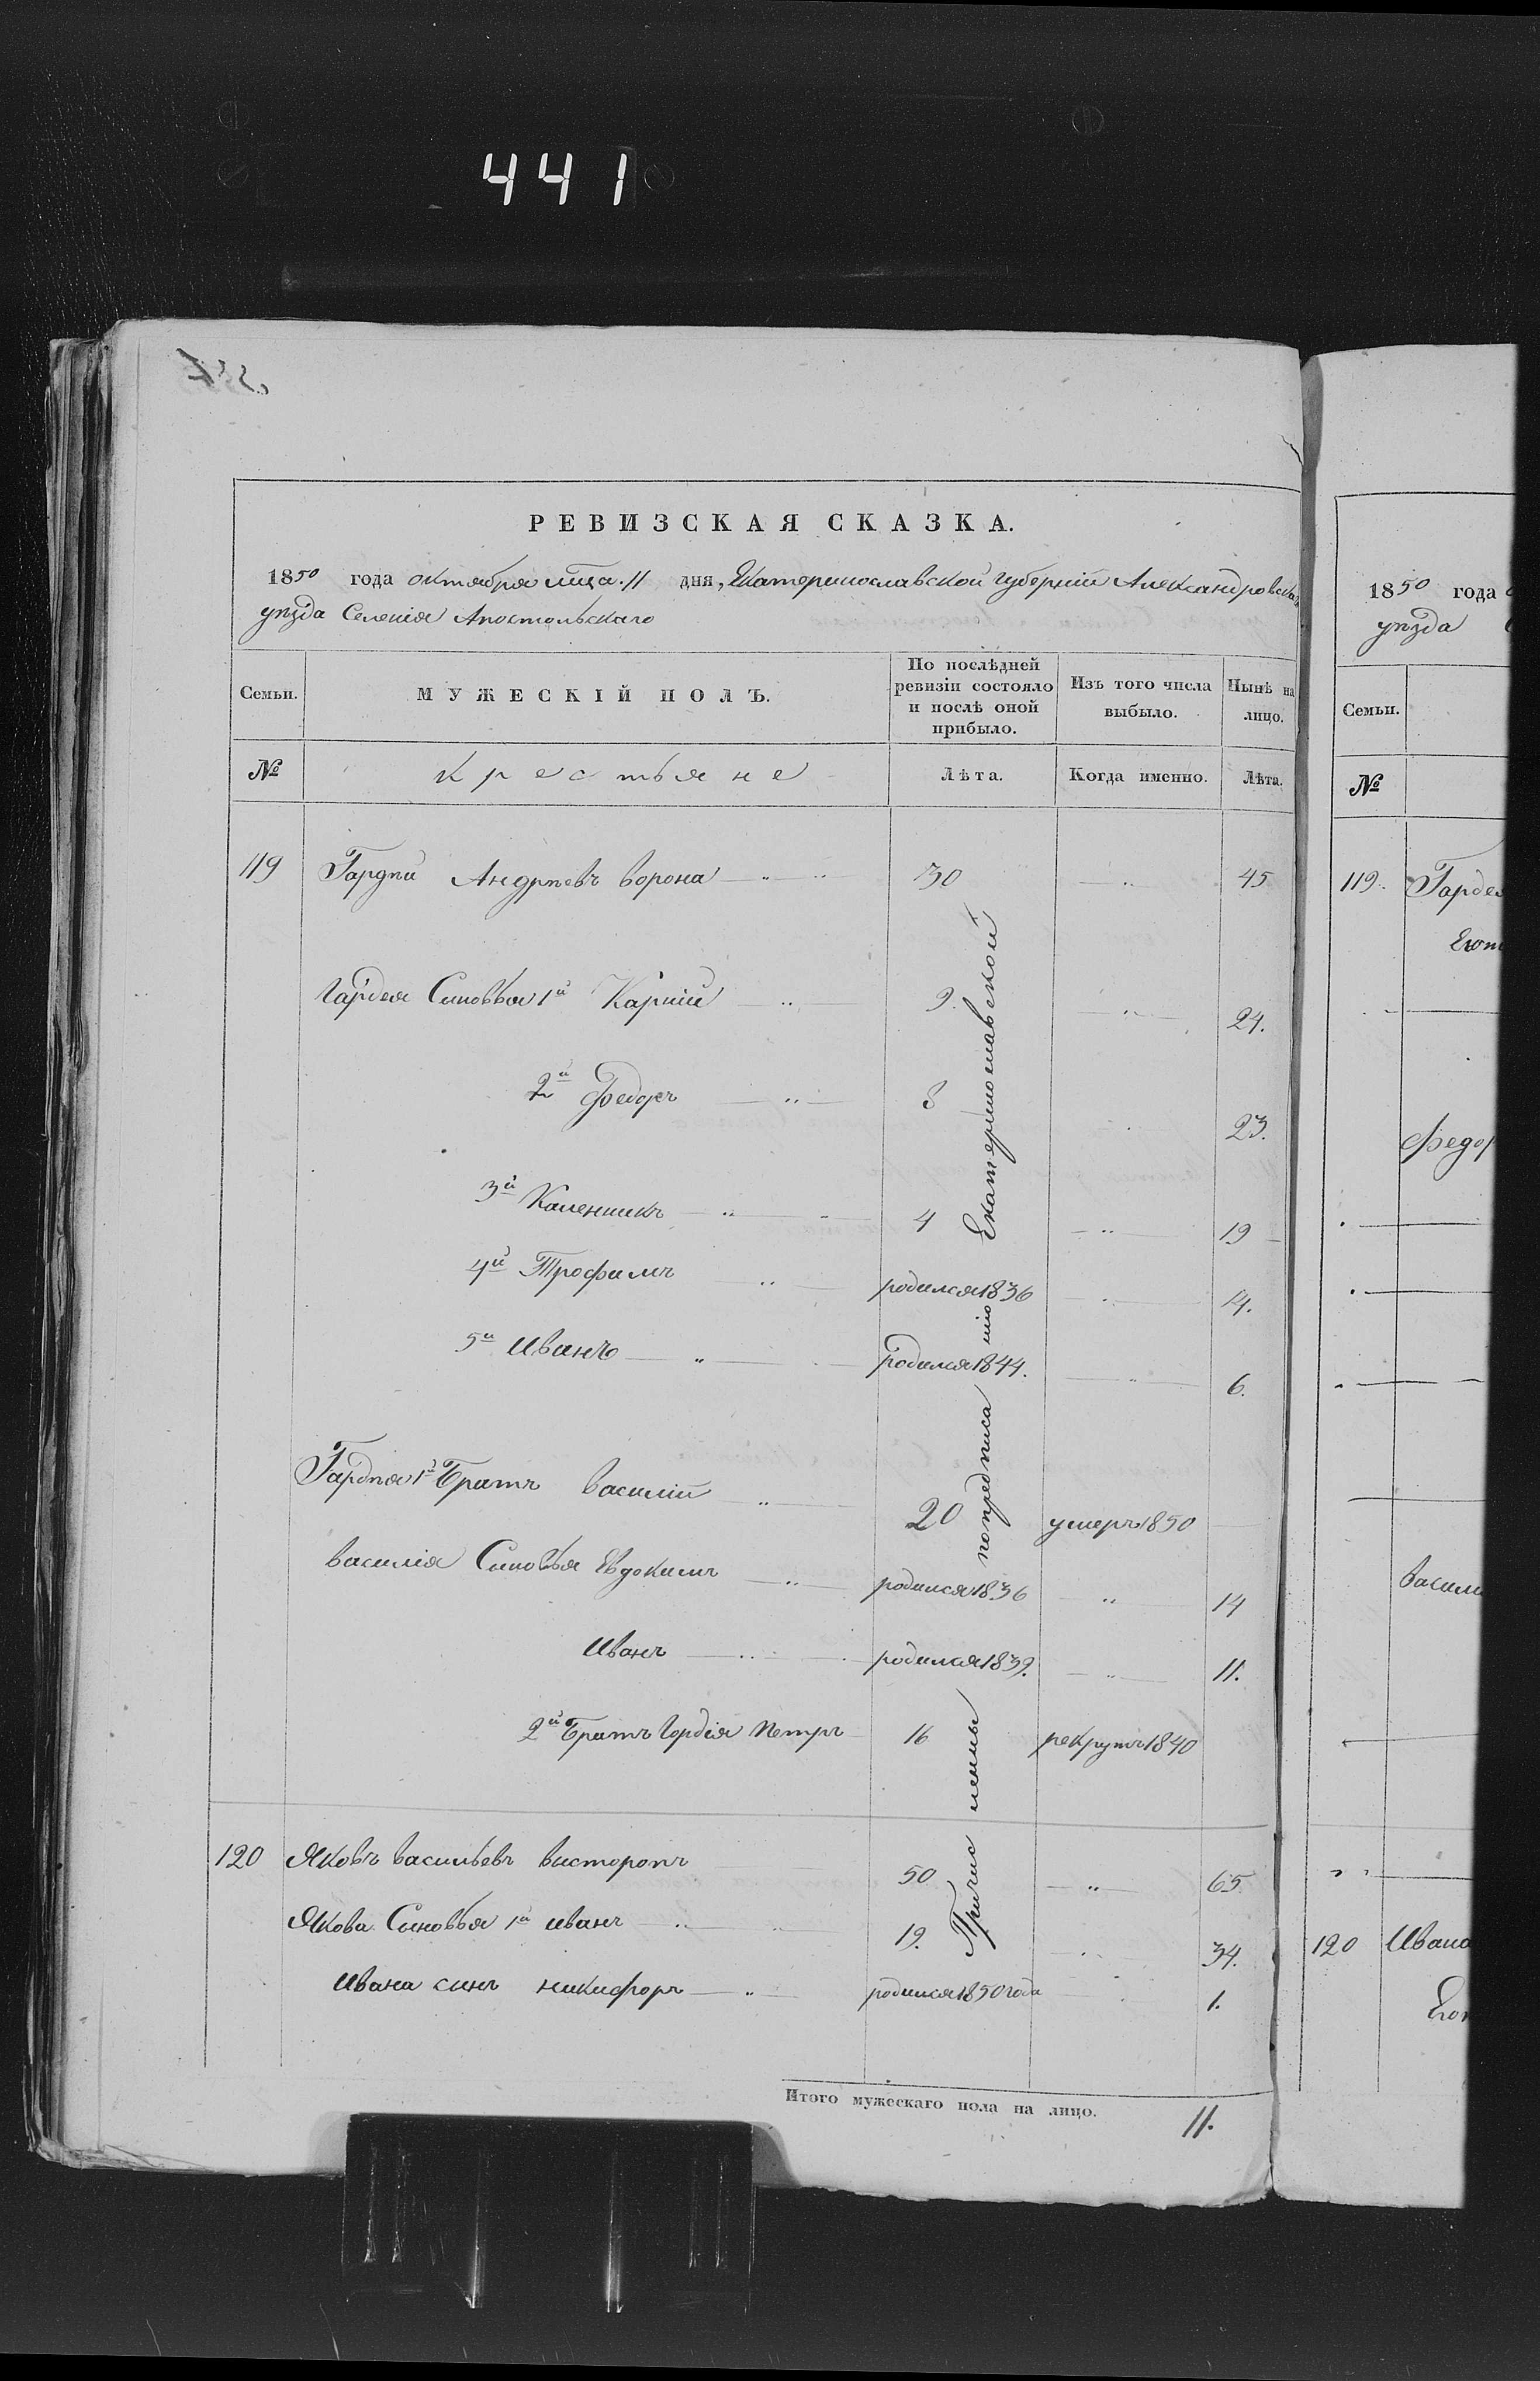 441
РЕВИЗСКАЯ СКАЗКА.
1850 года октября мца 11 дня, Екатеринославской губернии Александровска
уѣзда Селенія Апостольскаго
Семьи.
МУЖЕСКІЙ ПОЛЪ.
По послѣдней ревизіи состояло и послѣ оной прибыло.
Изъ того числа выбыло.
Нынѣ на лицо.
№
Крестьяне
Лѣта.
Когда именно.
Лѣта.
119 Гардѣй Андрѣевъ ворона 30 45
Гардея Синовья 1й Карпій 9. 24.
2й Федоръ 8 23.
3й Каленикъ 4 19
4й Трофимъ родился 1836 14.
5й Иванъ родился 1844. 6.
Гардѣя 1й Братъ василій 20 умеръ 1850
василія Синовья Евдокимъ родился 1836 14
Иванъ родился 1839. 11.
2й Братъ Гордія Петръ 16 рекрутъ 1840
120 Яковъ васильевъ висторопъ 50 65
Якова Синовья 1й иванъ 19. 34.
Ивана синъ никифоръ родился 1850 года 1.
Причисленны по предписанію Екатеринославской
Итого мужескаго пола на лицо. 11.
1850 года
уѣзда
Семьи.
№
119. Гарде
Федор
васили
120 Ивана